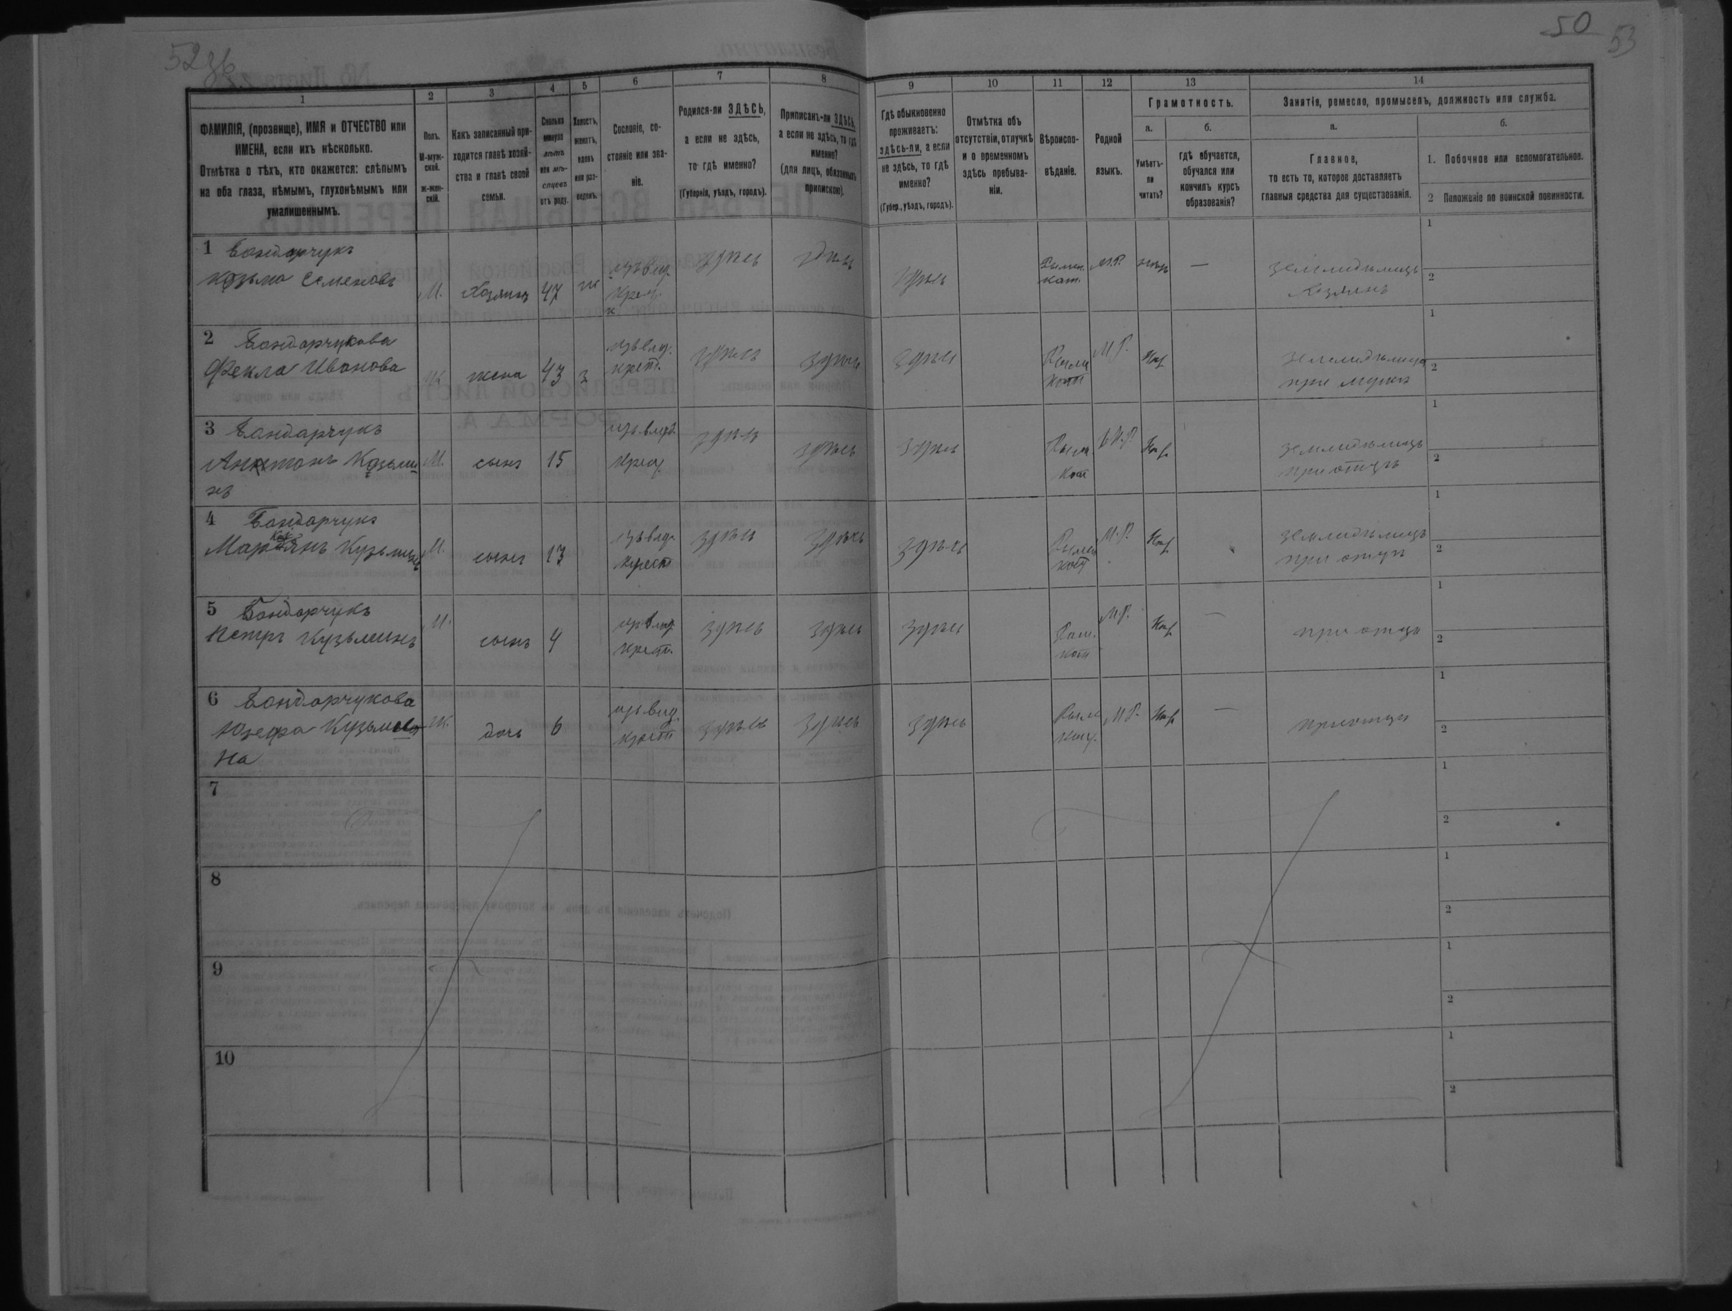 52об
50
53
1
2
3
4
5
6
7
8
9
10
11
12
13
14
ФАМИЛІЯ, (прозвище), ИМЯ и ОТЧЕСТВО или
ИМЕНА, если ихъ нѣсколько.
Отмѣтка о тѣхъ, кто окажется: слѣпымъ
на оба глаза, нѣмымъ, глухонѣмымъ или
умалишеннымъ.
Полъ.
М-муж-
ской.
Ж-жен-
скій.
Какъ записанный при-
ходится главѣ хозяй-
ства и главѣ своей
семьи.
Сколько
минуло
лѣтъ
или мѣ-
сяцевъ
отъ роду.
Холостъ,
женатъ,
вдовъ
или раз-
веденъ.
Сословіе, со-
стояніе или зва-
ніе.
Родился-ли ЗДѢСЬ,
а если не здѣсь,
то гдѣ именно?
(Губернія, уѣздъ, городъ).
Приписанъ-ли ЗДѢСЬ,
а если не здѣсь, то гдѣ
именно?
(для лицъ, обязанныхъ
припискою).
Гдѣ обыкновенно
проживаетъ:
здѣсь-ли, а если
не здѣсь, то гдѣ
именно?
(Губер., уѣздъ, городъ).
Отмѣтка объ
отсутствіи, отлучкѣ
и о временномъ
здѣсь пребыва-
ніи.
Вѣроиспо-
вѣданіе.
Родной
языкъ.
Грамотность.
а.
б.
Умѣетъ-
ли
читать?
гдѣ обучается,
обучался или
кончилъ курсъ
образованія?
Занятія, ремесло, промыселъ, должность или служба.
а.
б.
Главное,
то есть то, которое доставляетъ
главныя средства для существованія.
1. Побочное или вспомогательное.
2 Положеніе по воинской повинности.
1 Бондарчукъ
Козьма Семеновъ
М. Хозяинъ 47 ж
изъ влад.
крест.
здѣсь здѣсь здѣсь
Римск.
кат.
М.Р. негр. —
Земледѣлецъ
Хозяинъ
1
2
2 Бондарчукова
Фекла Иванова
Ж жена 43 з
изъ влад.
крест.
здѣсь здѣсь здѣсь
Римск
кат
М.Р. Негр
Земледѣлица
при мужѣ
1
2
3 Бондарчукъ
Антонъ Козьми
нъ
М. сынъ 15
изъ влад.
крест.
здѣсь здѣсь здѣсь
Римск
Кат
М.Р. Негр
Земледѣлецъ
при отцѣ
1
2
4 Бондарчукъ
Кузьминъ
М. сынъ 13
изъ влад.
крест
здѣсь здѣсь здѣсь
Римск
кат
М.Р. Негр
Земледѣлецъ
при отцѣ
1
2
5 Бондарчукъ
Петръ Кузьминъ
М. сынъ 4
изъ влад.
крест.
здѣсь здѣсь здѣсь
Рим.
Кат
М.Р. Негр —
при отцѣ
1
2
6 Бондарчукова
Юзефа Кузьми
на
Ж. дочь 6
изъ влад.
крест
здѣсь здѣсь здѣсь
Римс
Кат.
М.Р. Негр —
при отцѣ
1
2
7
1
2
8
1
2
9
1
2
10
1
2